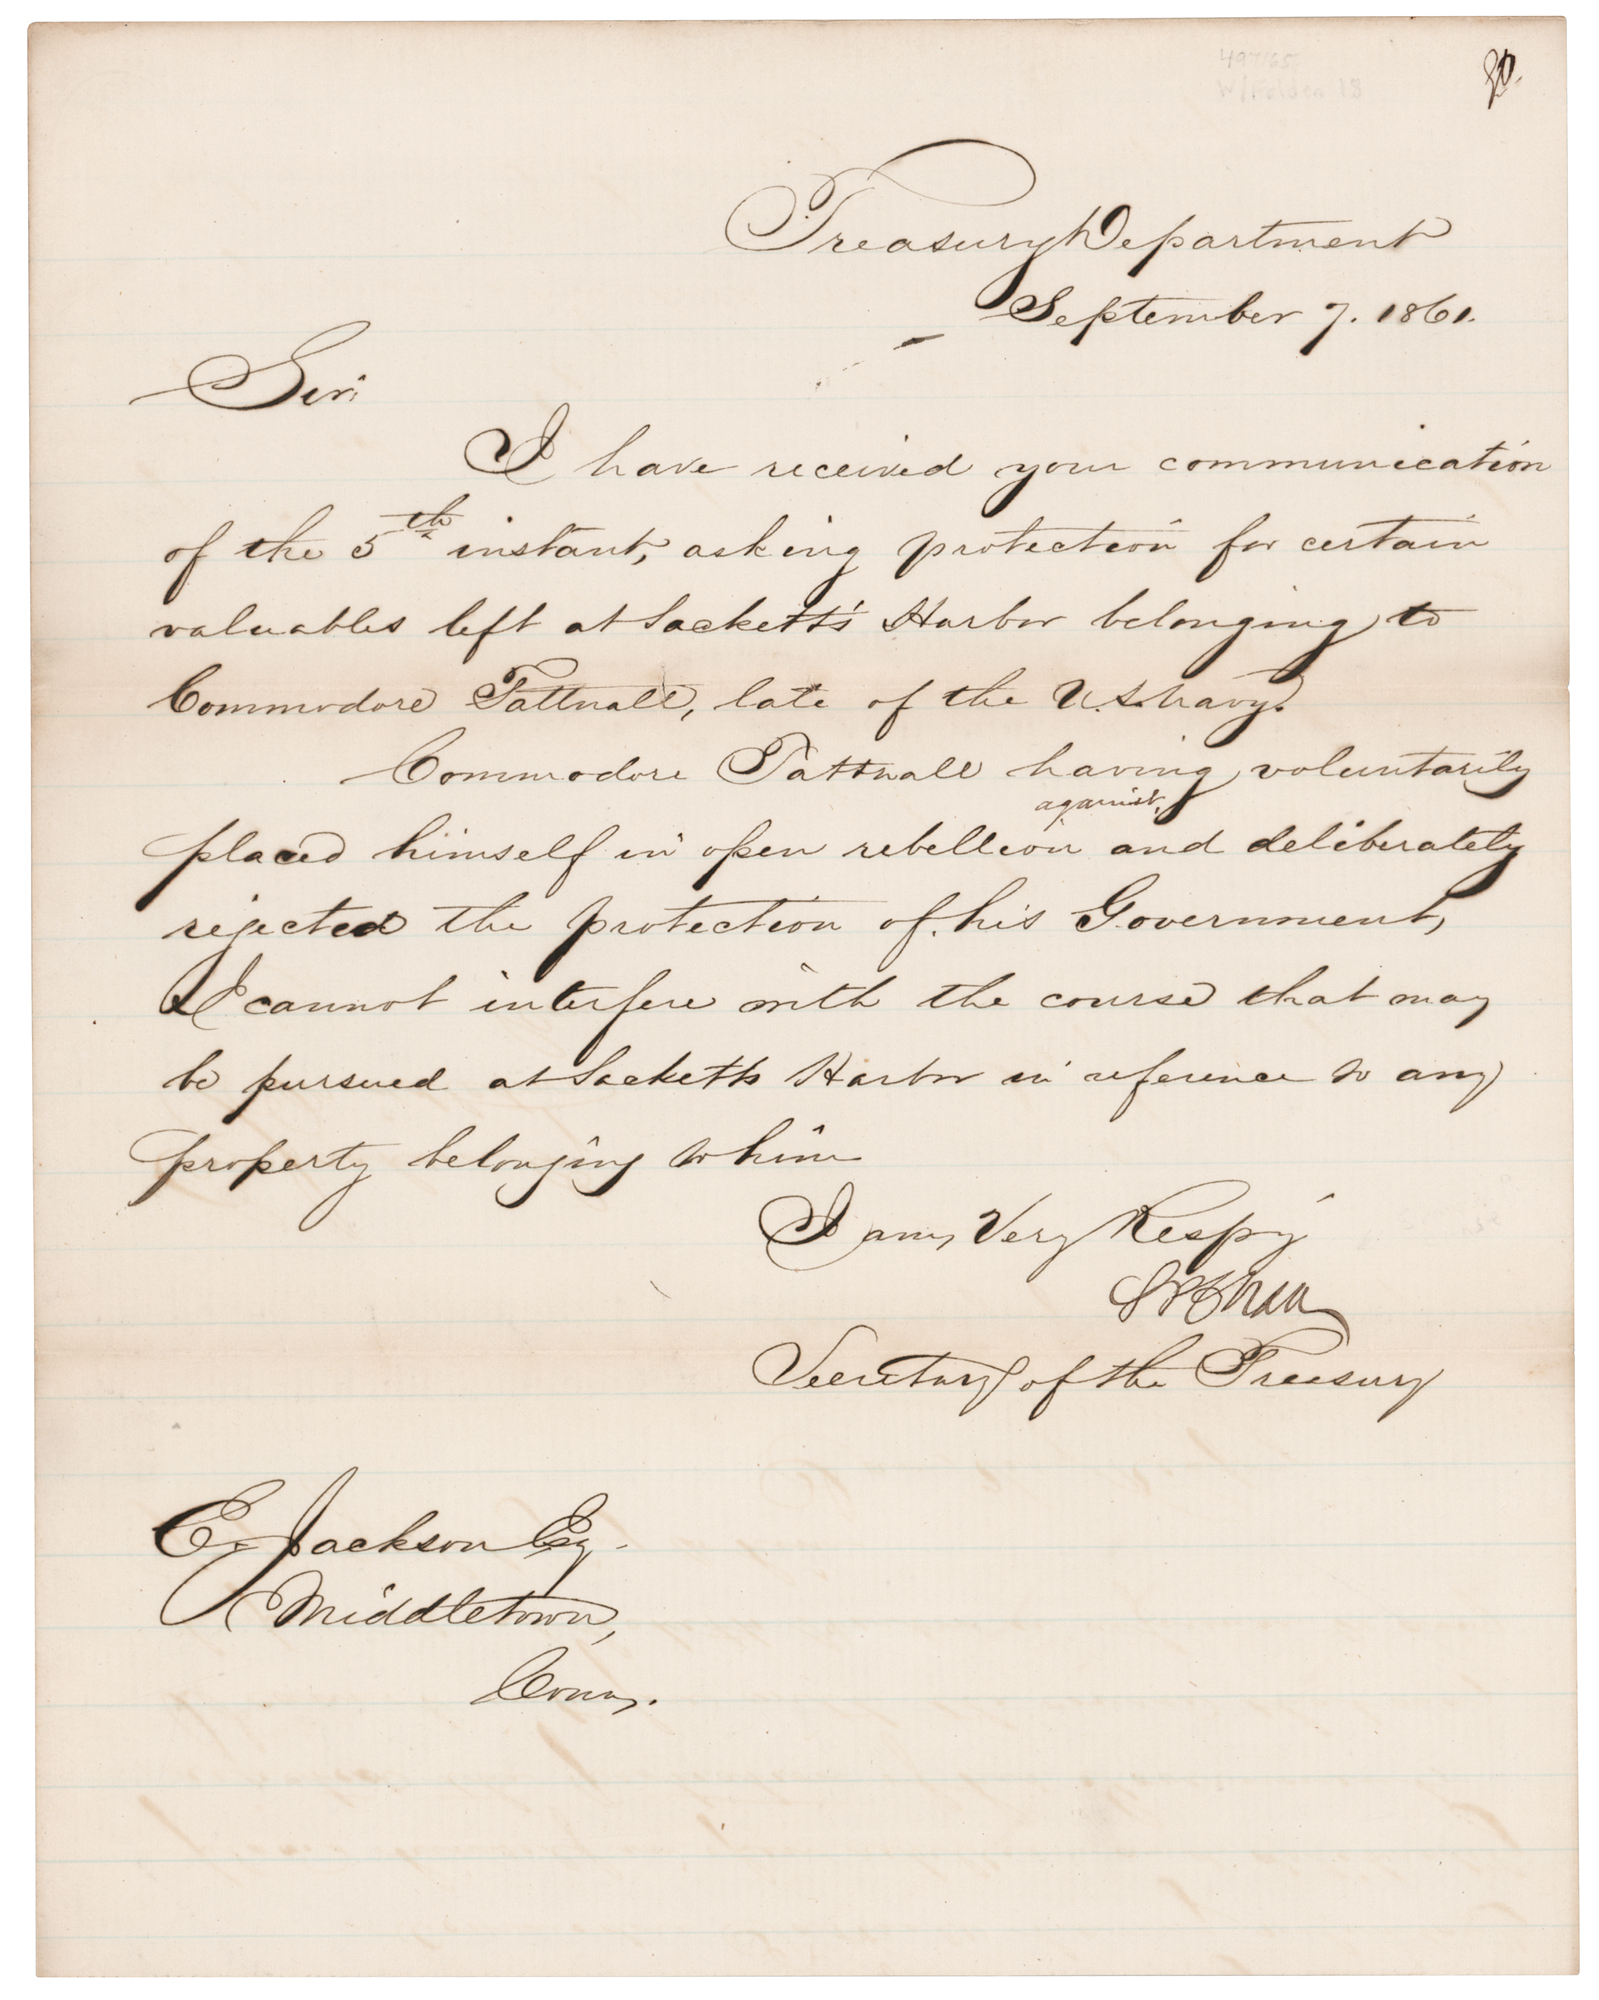 Treasury Department
September 7. 1861.
Sir:
I have received your communication
of the 5th instant, asking protection for certain
valuables left at Sackett's Harbor belonging to
Commodore Tattnall, late of the U.S. Navy.
Commodore Tattnall having voluntarily
against
placed himself in open rebellion and deliberately
rejected the protection of his Government,
I cannot interfere with the course that may
be pursued at Sacketts Harbor in reference to any
property belonging to him
I am, Very Respy
S P Chase
Secretary of the Treasury
E. Jackson Esq.
Middletown,
Conn.